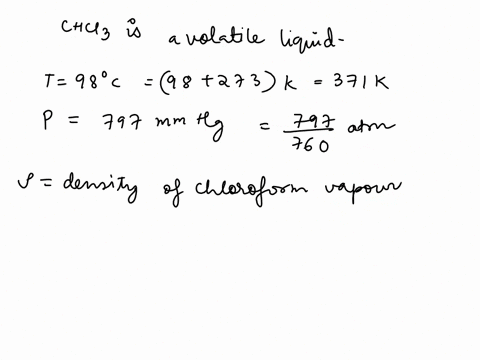 CHCl3 is a volatile liquid-
T = 98°C = (98 + 273) K = 371 K
P = 797 mm Hg = 797/760 atm
ρ = density of chloroform vapour